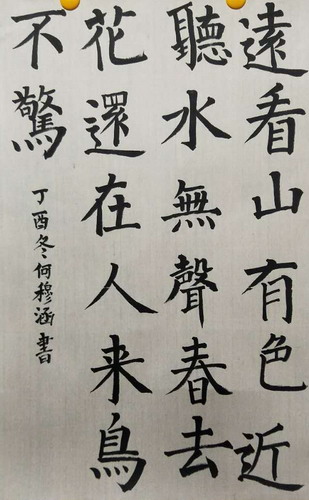 遠看山有色近
聽水無聲春去
花還在人来鳥
不驚
丁酉冬何穆涵書